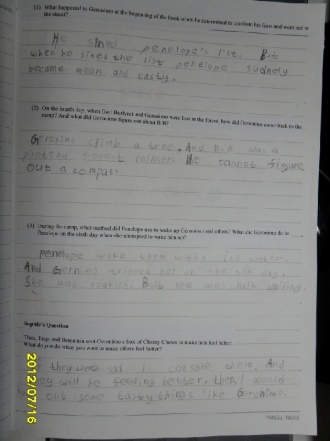 (1) What happened to Geronimo at the beginning of the book when he determined to confront his fears and went out in the street?
He sined penelope's list. But
when he sined the list penelope sudnely
became mean and nasty.
(2) On the fourth day, when Geronimo were lost in the forest, how did Geronimo come back to the camp? And what did Geronimo figure out about B.B?
Geronimo climb a tree. And B.B. was a
pretend forest rainser. He cannot figure
out a compass.
(3) During the camp, what method did Penelope use to wake up Geronimo and others? What did Geronimo do to
Penelope on the sixth day when she attempted to wake him up?
penelope woke them with ice water.
And Germino tripped her at the six day.
She was soaking. But she was half smiling.
Sophie's Question
Then, Trap, and Benjamin sent Geronimo a box of Cheesy Chews to make him feel better.
What do you do when you want to make others feel better?
they were sad I console them. And
they will be feeling better. then I would
out some tasty things like Geronimo.
2012/07/16